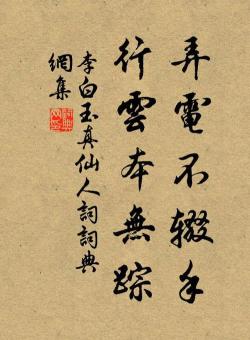 弄電不辍手
行雲本無踪
李白玉真仙人詞詞典
網集